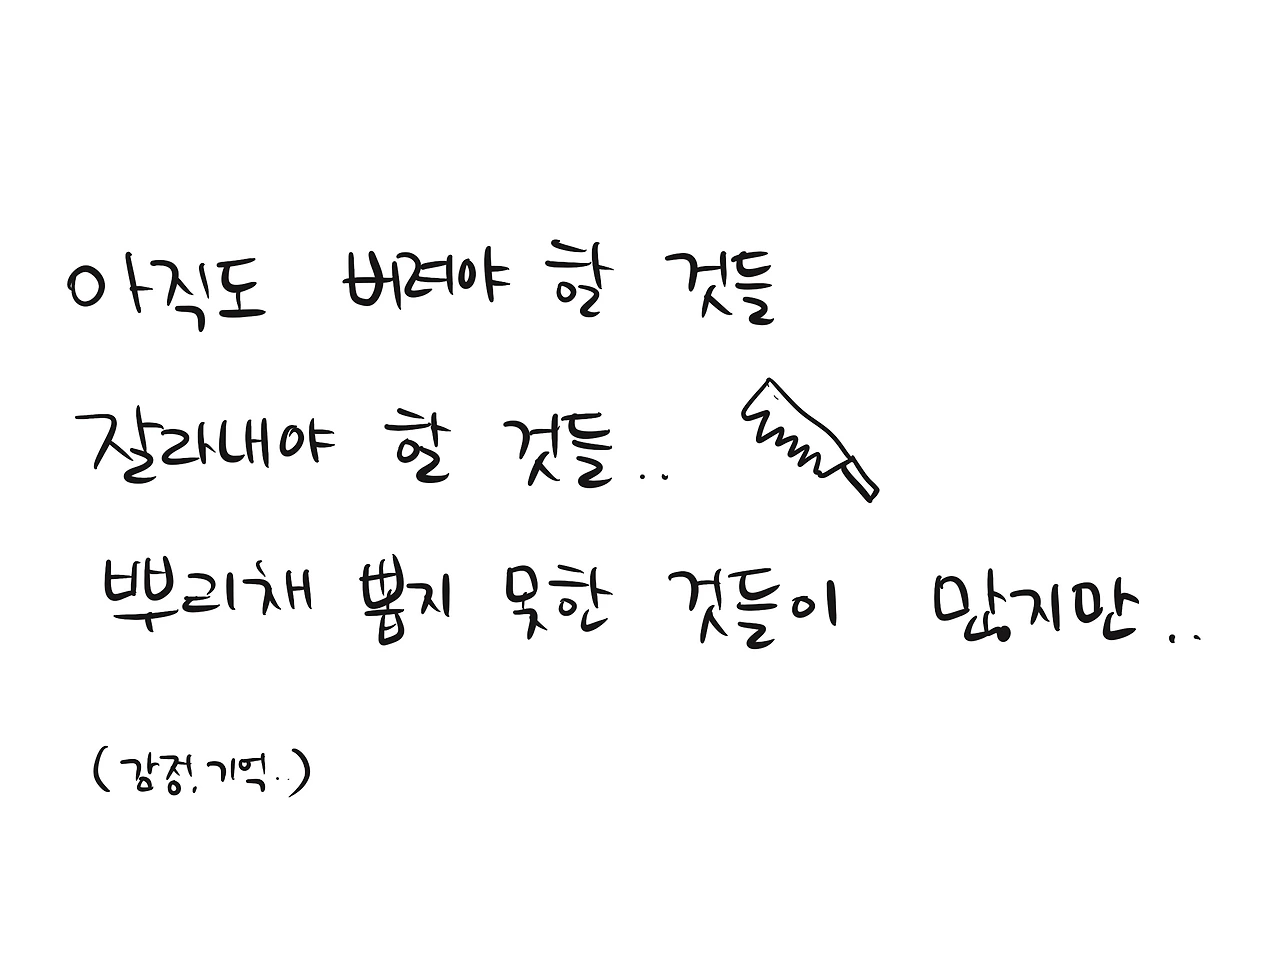 아직도 버려야 할 것들
잘라내야 할 것들..
뿌리채 뽑지 못한 것들이 많지만..
(감정, 기억..)